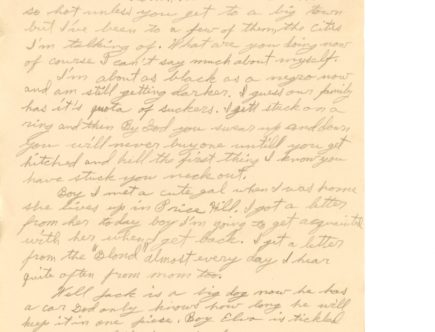 so hot unless you get to a big town
but I've been to a few of them, the cities
I'm talking of. What are you doing now
of course I can't say much about myself.
I'm about as black as a negro now
and am still getting darker. I guess our family
has it's quota of suckers. I get stuck on a
ring and then By God you swear up and down
you will never buy one untill you get
hitched and hell the first thing I know you
have stuck you neck out.
Boy I met a cute gal when I was home
she lives up in Price Hill. I got a letter
from her today boy I'm going to get acquainted
with her when I get back. I get a letter
from the "Blond" almost every day I hear
quite often from mom too.
Well Jack is a big dog now he has
a car God only knows how long he will
keep it in one piece. Boy is tickled